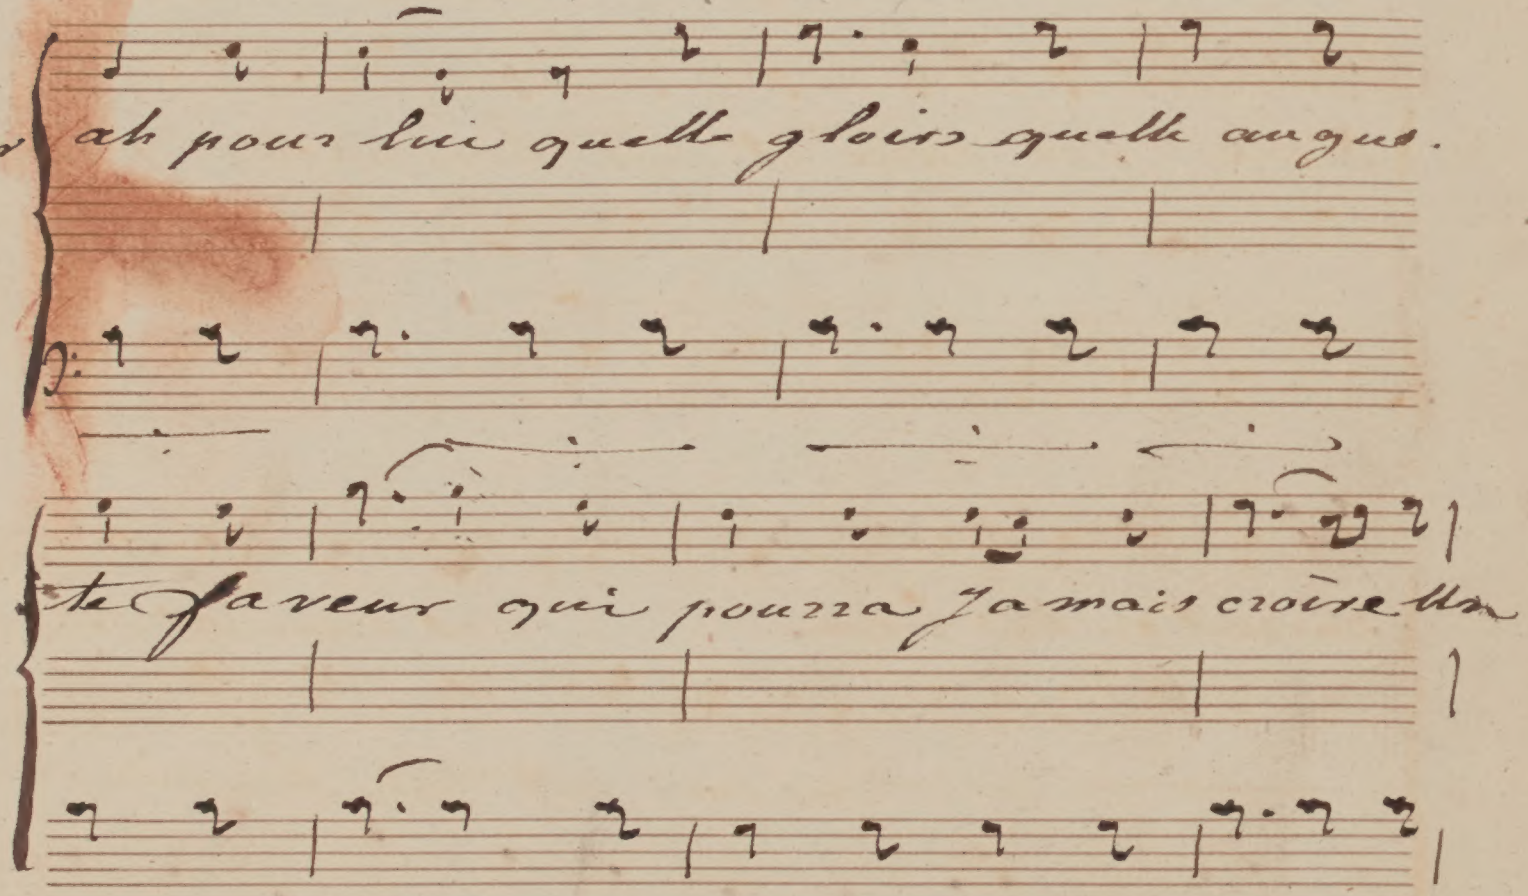 ah pour lui quelle gloire quelle augus.
te faveur qui pourra Jamais croire Un